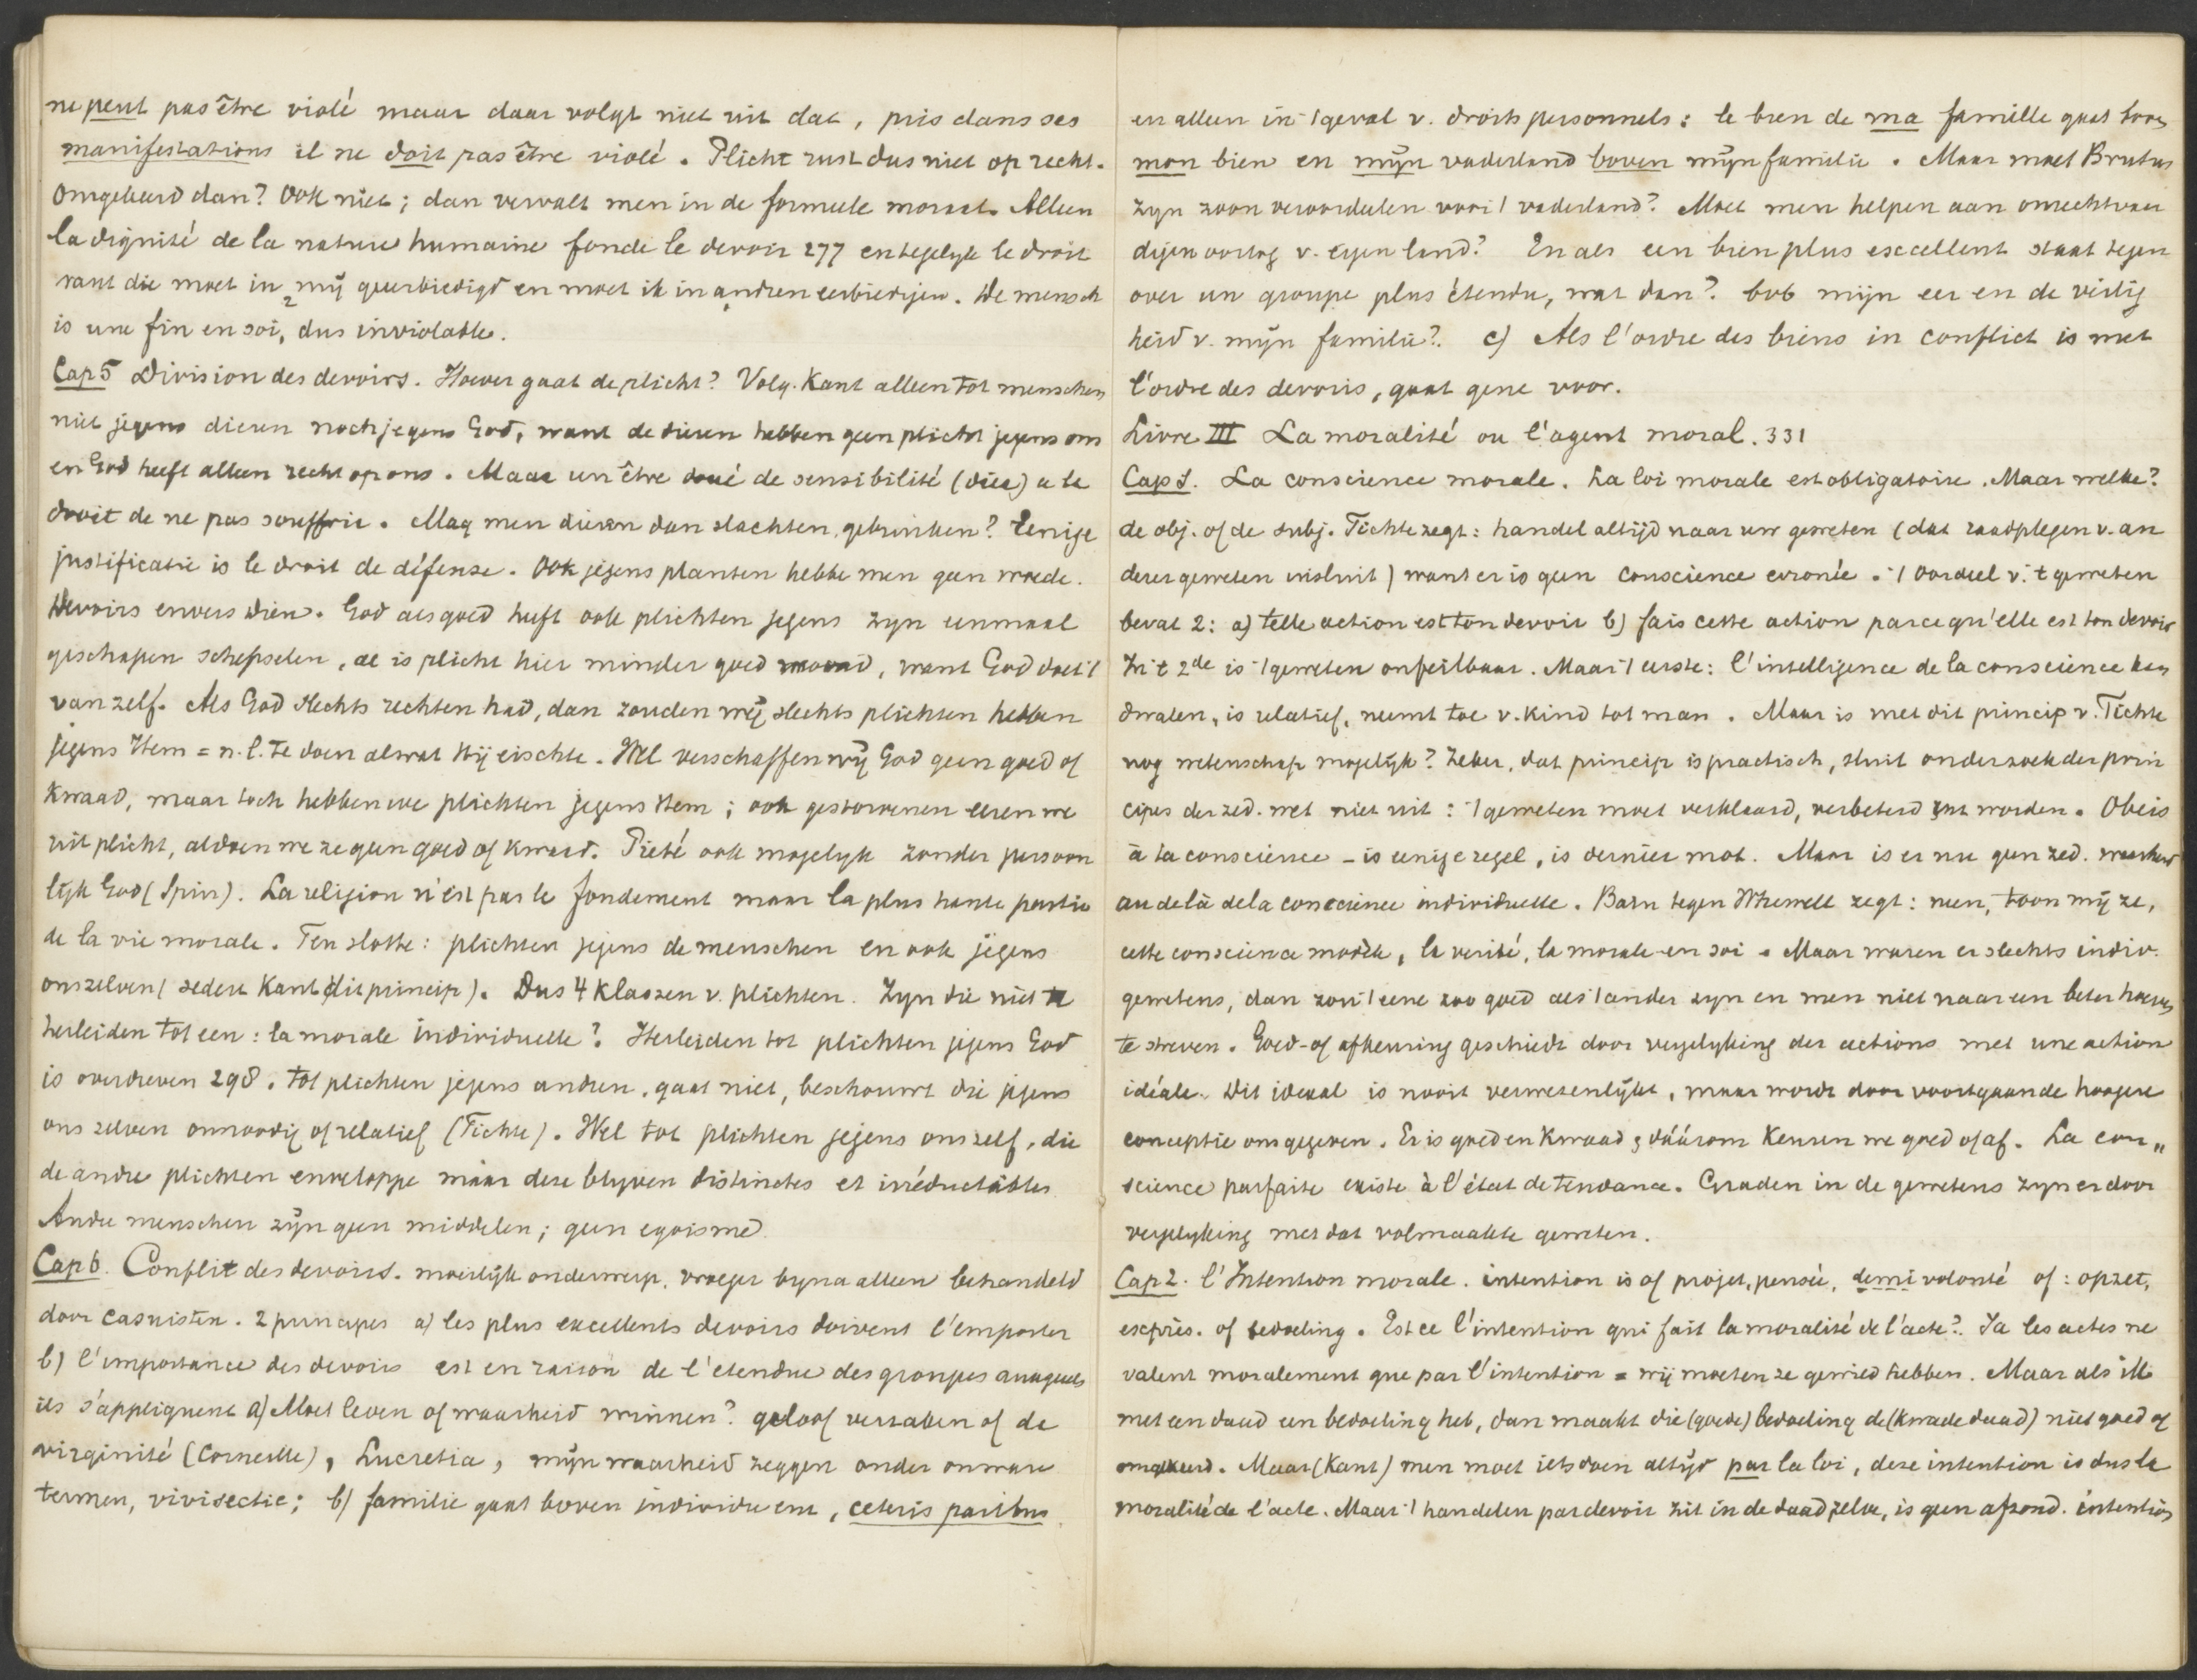 ne peut pas être violé maar daar volgt niet uit dat, pris dans ses
manifestations il ne doit pas être violé. Plicht rust dus niet op recht.
Omgekeerd dan? Ook niet; dan vervalt men in de formeele moraal. Alleen
la dignité de la nature humaine fonde le devoir 277 en tegelyk le droit
want die moet in mij geeerbiedigd en moet ik in andren eerbiedigen. De mensch
is une fin en soi, dus inviolable.
Cap 5 Division des devoirs. Hoever gaat de plicht? Volg. Kant alleen tot menschen
niet jegens dieren noch jegens God, want de dieren hebben geen plicht jegens ons
en God heeft alleen recht op ons. Maar un être doué de sensibilité (dier) a le
droit de ne pas souffrir. Mag men dieren dan slachten, gebruiken? Eenige
justificatie is le droit de défense. Ook jegens planten hebbe men geen wrede.
Devoirs envers Dieu. God als goed heeft ook plichten jegens zyn eenmaal
geschapen schepselen, al is plicht hier minder goed woord, want God doet 't
van zelf. Als God slechts rechten had, dan zouden wij slechts plichten hebben
jegens Hem = n.l. te doen al wat Hij eischte. Wel verschaffen wij God geen goed of
kwaad, maar toch hebben we plichten jegens Hem; ook gestorvenen eeren we
uit plicht, al doen we ze geen goed of kwaad. Piété ook mogelyk zonder persoon
lijk God (Spin). La religion n'est pas le fondement maar la plus haute partie
de la vie morale. Ten slotte: plichten jegens de menschen en ook jegens
onszelven (sedert Kant dit princip). Dus 4 klassen v. plichten. Zyn die niet te
herleiden tot een: la morale individuelle? Herleiden tot plichten jegens God
is overdreven 298. Tot plichten jegens andren, gaat niet, beschouwt die jegens
ons zelven onnoodig of relatief (Fichte). Wel tot plichten jegens ons zelf, die
de andre plichten enveloppe maar deze blyven distinctes et irréductibles
Andre menschen zijn geen middelen; geen egoisme
Cap 6. Conflit des devoirs. moeilijk onderwerp, vroeger byna alleen behandeld
door casuisten. 2 principes a) les plus excellents devoirs doivent l'emporter
b) l'importance des devoirs est en raison de l'etendue des groupes auxquels
ils s'appliquent a) Moet leven of waarheid winnen? geloof verzaken of de
virginité (Corneille), Lucretia, mijn waarheid zeggen onder onware
termen, vivisectie; b) familie gaat boven individu enz, ceteris paribus
en alleen in 't geval v. droits personnels: le bien de ma famille gaat boven
mon bien en mijn vaderland boven mijn familie. Maar moet Brutus
zyn zoon veroordeelen voor 't vaderland? Moet men helpen aan onrechtvaar
digen oorlog v. eigen land? En als een bien plus excellent staat tegen
over un groupe plus étendu, wat dan? bvb mijn eer en de veilig
heid v. mijn familie? c) Als l'ordre des biens in conflict is met
l'ordre des devoirs, gaat gene voor.
Livre III La moralité ou l'agent moral. 331
Cap 1. La conscience morale. La loi morale est obligatoire. Maar welke?
de obj. of de subj. Fichte zegt: handel altijd naar uw geweten (dat raadplegen v. an
derer geweten insluit) want er is geen conscience erronée. 't Oordeel v. 't geweten
bevat 2: a) telle action est ton devoir b) fais cette action parce qu'elle est ton devoir
In 't 2de is 't geweten onfeilbaar. Maar 't eerste: l'intelligence de la conscience kan
dwalen, is relatief, neemt toe v. kind tot man. Maar is met dit princip v. Fichte
nog wetenschap mogelijk? Zeker, dat princip is practisch, sluit onderzoek der prin
cipes der zed. wet niet uit: 't geweten moet verklaard, verbeterd enz worden. Obéis
à ta conscience – is eenige regel, is dernier mot. Maar is er nu geen zed. waarheid
au delà de la conscience individuelle. Bain tegen Whewell zegt: neen, toon mij ze,
cette conscience modèle, la verité, la morale en soi. Maar waren er slechts indiv.
gewetens, dan zou 't eene zoo goed als 't ander zyn en men niet naar een beter hoeven
te streven. Goed- of afkeuring geschiedt door vergelyking der actions met une action
idéale. Dit ideaal is nooit verwezenlijkt, maar wordt door voortgaande hoogere
conceptie ons gegeven. Er is goed en kwaad, dáárom keuren we goed of af. La con„
science parfaite existe à l'état de tendance. Graden in de gewetens zyn er door
vergelyking met dat volmaakte geweten.
Cap 2. l'Intention morale. intention is of projet, pensée, demi volonté of: opzet,
exprès. of bedoeling. Est ce l'intention qui fait la moralité de l'acte? Ja les actes ne
valent moralement que par l'intention = wij moeten ze gewild hebben. Maar als ik
met een daad een bedoeling heb, dan maakt die (goede) bedoeling de (kwade daad) niet goed of
omgekeerd. Maar (Kant) men moet iets doen altijd par la loi, deze intention is dus la
moralité de l'acte. Maar 't handelen par devoir zit in de daad zelve, is geen afzond. intention